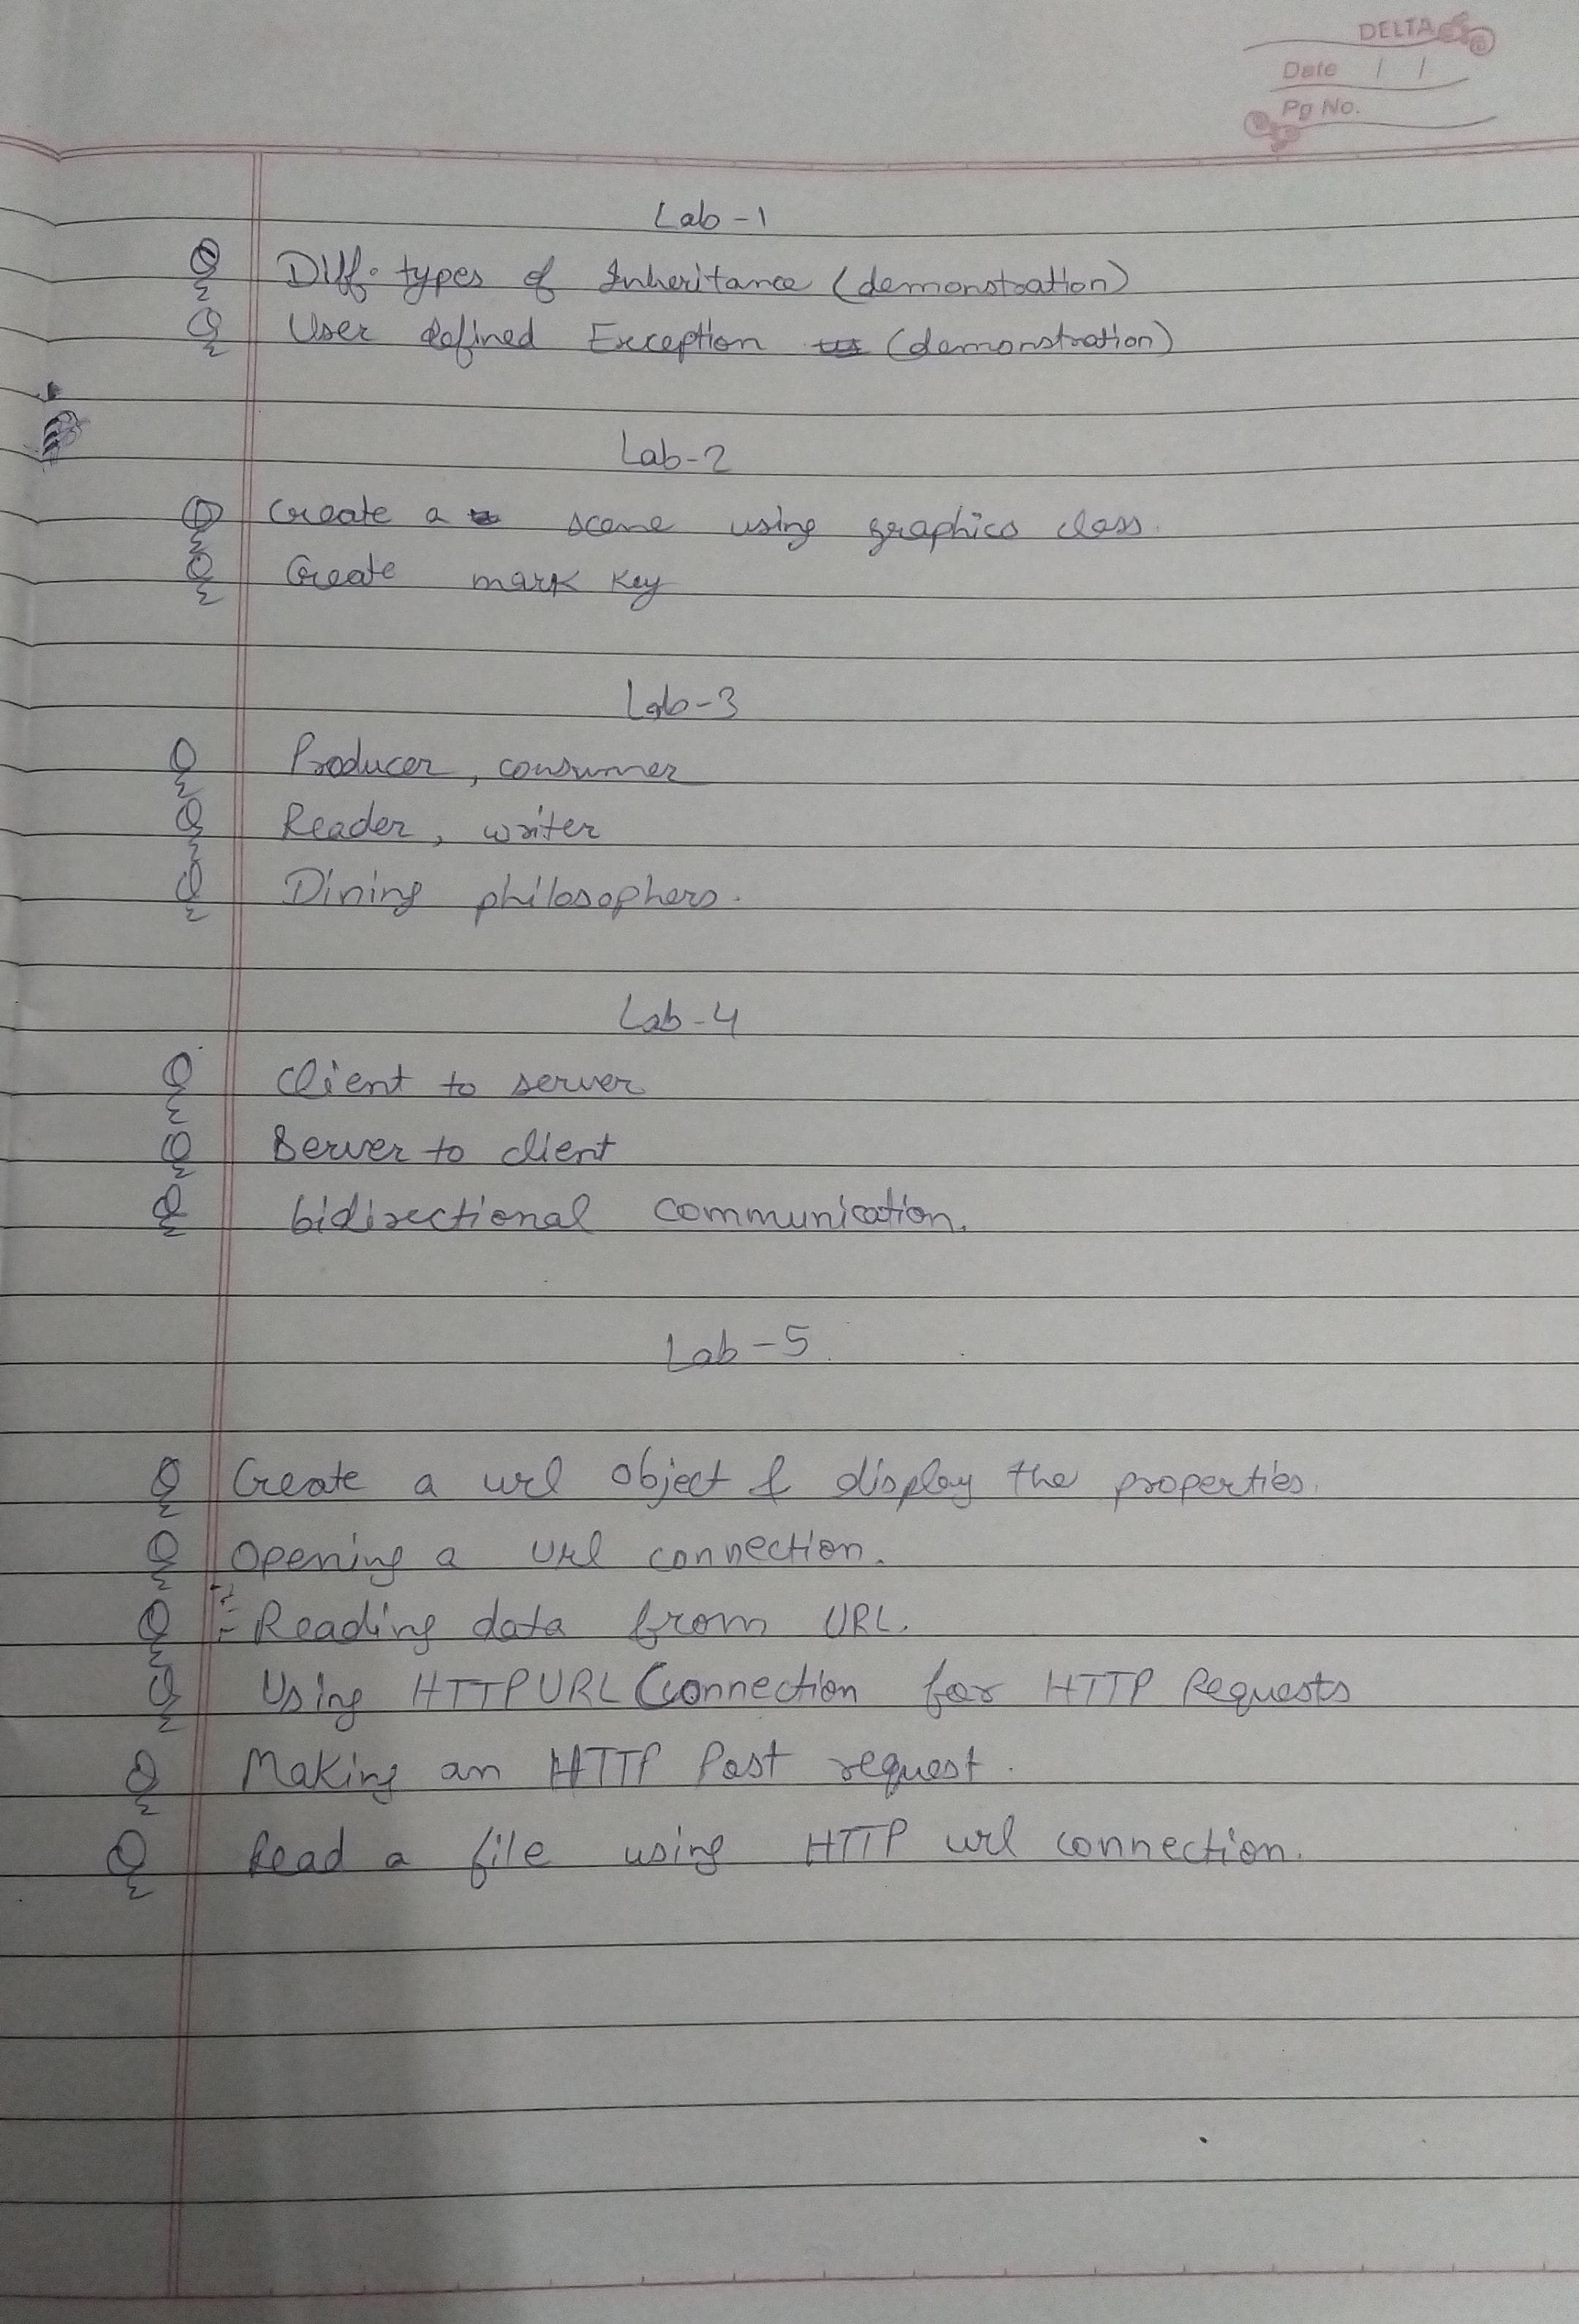 DELTA
Date / /
Pg No.
Lab-1
Q Diff. types of Inheritance (demonstration)
Q User defined Exception (demonstration)
Lab-2
Q Create a scene using graphics class.
Q Create mark key
Lab-3
Q Producer, consumer
Q Reader, writer
Q Dining philosophers.
Lab-4
Q Client to server
Q Server to client
Q bidirectional communication.
Lab-5
Q Create a url object & display the properties.
Q Opening a url connection.
Q Reading data from URL.
Q Using HTTPURLConnection for HTTP Requests
Q Making an HTTP Post request.
Q Read a file using HTTP url connection.